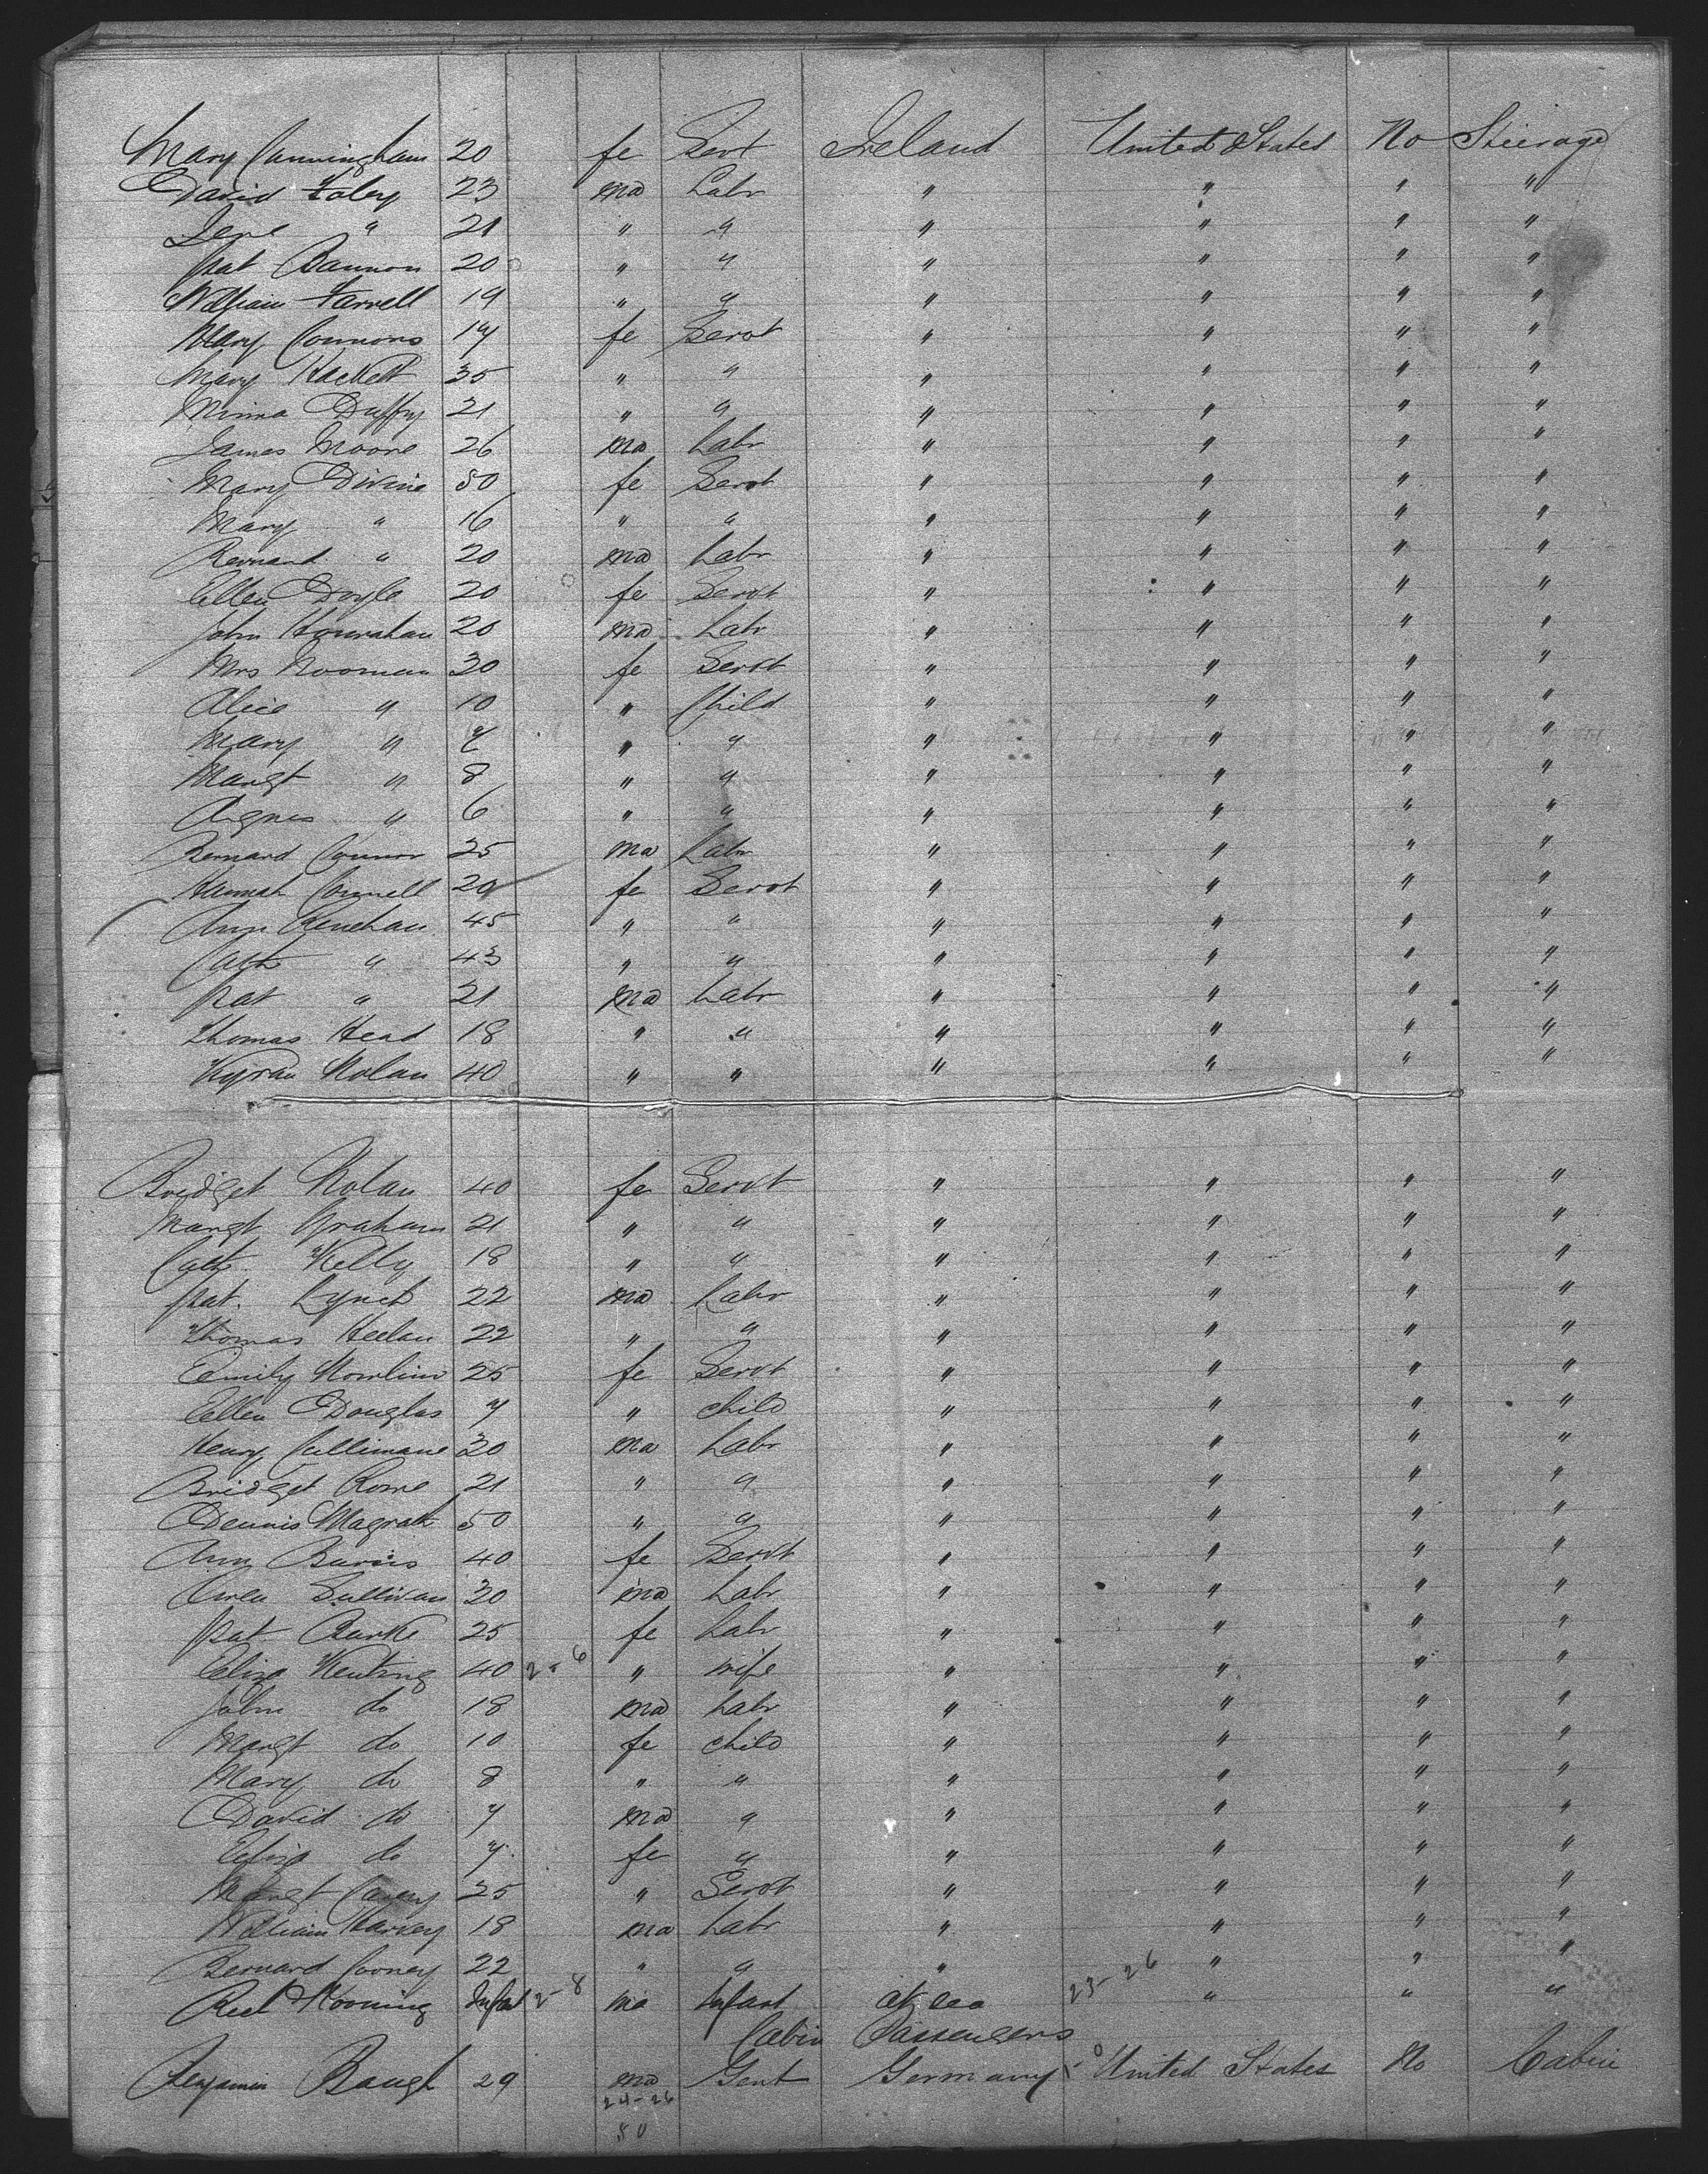 Mary Cunningham 20 fe Servt Ireland United States No Steerage
David Foley 23 ma Labr " " " "
Jere " 21 " " " " " "
Pat Bannon 20 " " " " " "
William Farrell 19 " " " " " "
Mary Connors 17 fe Servt " " " "
Mary Hackett 35 " " " " " "
Minna Duffy 21 " " " " " "
James Moore 26 ma Labr " " " "
Mary Divine 50 fe Servt " " " "
Mary " 16 " " " " " "
Bernard " 20 ma Labr " " " "
Ellen Doyle 20 fe Servt " " " "
John Hourahan 20 ma Labr " " " "
Mrs Nooman 30 fe Servt " " " "
Alice " 10 " Child " " " "
Mary " " " " " " "
Margt " 8 " " " " " "
Agnes " 6 " " " " " "
Bernard Connor 25 ma Labr " " " "
Hannah Connell 20 fe Servt " " " "
Ann Renehan 45 " " " " " "
Cath " 43 " " " " " "
Pat " 21 ma Labr " " " "
Thomas Head 18 " " " " " "
Kyran Nolan 40 " " " " " "
Bridget Nolan 40 fe Servt " " " "
Margt Graham 21 " " " " " "
Cath Kelly 18 " " " " " "
Pat. Lynch 22 ma Labr " " " "
Thomas Heelan 22 " " " " " "
Emily Nowlin 25 fe Servt " " " "
Ellen Douglas 7 " child " " " "
Henry Cullinane 30 ma Labr " " " "
Bridget Rowe 21 " " " " " "
Dennis Magrath 50 " " " " " "
Ann Burns 40 fe Servt " " " "
Owen Sullivan 30 ma Labr " " " "
Pat Burke 25 fe Labr " " " "
Eliza Keating 40 2-6 " wife " " " "
John do 18 ma Labr " " " "
Margt do 10 fe child " " " "
Mary do 8 " " " " " "
David do 7 ma " " " " "
Eliza do 7 fe " " " " "
Margt Carey 25 " Servt " " " "
William Harvey 18 ma Labr " " " "
Bernard Cooney 22 " " " " " "
Infant 2-8 ma Infant at sea 23-26 " " "
Cabin Passengers
Benjamin Baugh 29 ma Gent Germany United States No Cabin
24-26
50